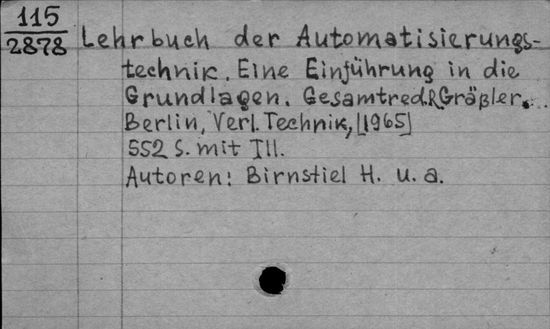 115
2878
Lehrbuch der Automatisierungs-
technik. Eine Einführung in die
Grundlagen. Gesamtred. R. Gräßler.
Berlin, Verl. Technik, [1965]
552 S. mit Ill.
Autoren: Birnstiel H. u. a.